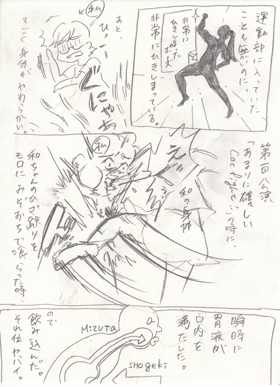 運動部に入っていた
ことも無いのに、
非常に
ひきしまった体
非常にひきしまっている。
私
あと、
ひ、
にゃあ
すごく身体が
やわらかい。
第一回公演
「あまりに雄々しい
Cat Fight」の時に、
私
私の身体
和ちゃんのひざ蹴りを
モロにみぞおちで喰らった時、
瞬時に
胃液が
口内を
満たした。
ので
飲み込んだ。
それ位ヤバイ。
MIZUTA
SHOGEKI